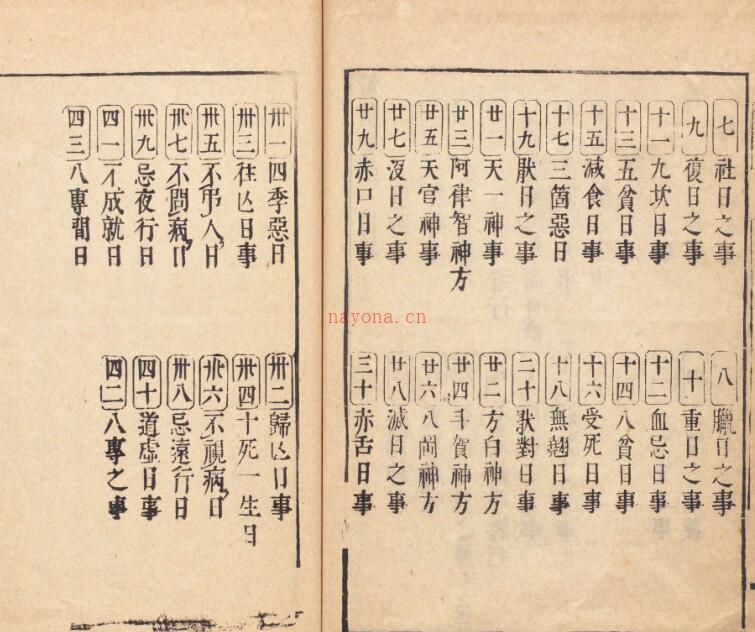 七 社日之事 八 臘日之事
九 復日之事 十 重日之事
十一 九坎日事 十二 血忌日事
十三 五貧日事 十四 八貧日事
十五 減食日事 十六 受死日事
十七 三箇惡日 十八 無翹日事
十九 厭日之事 二十 厭對日事
廿一 天一神事 廿二 方白神方
廿三 阿律智神方 廿四 斗賀神方
廿五 天官神事 廿六 八尚神方
廿七 没日之事 廿八 滅日之事
廿九 赤口日事 三十 赤舌日事
卅一 四季惡日 卅二 歸亾日事
卅三 往亾日事 卅四 十死一生日
卅五 不弔人日 卅六 不視病日
卅七 不問病日 卅八 忌遠行日
卅九 忌夜行日 四十 道虛日事
四一 不成就日 四二 八專之事
四三 八專間日
nayona.cn